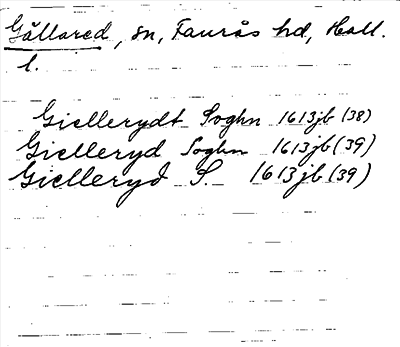 Gällared, sn, Faurås hd, Hall.
l.
Giellerydt Soghn 1613jb (38)
Gielleryd Soghn 1613jb (39)
Gielleryd S. 1613jb (39)